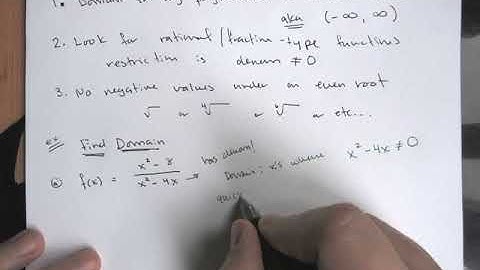 1. Domain
aka (-∞, ∞)
2. Look for rational/fraction-type functions
restriction is denom ≠ 0
3. No negative values under an even root
√ or ∜ or ⁶√ or etc...
Ex Find Domain
ⓐ f(x) = (x² - 8)/(x² - 4x) → has denom!
Domain: x's where x² - 4x ≠ 0